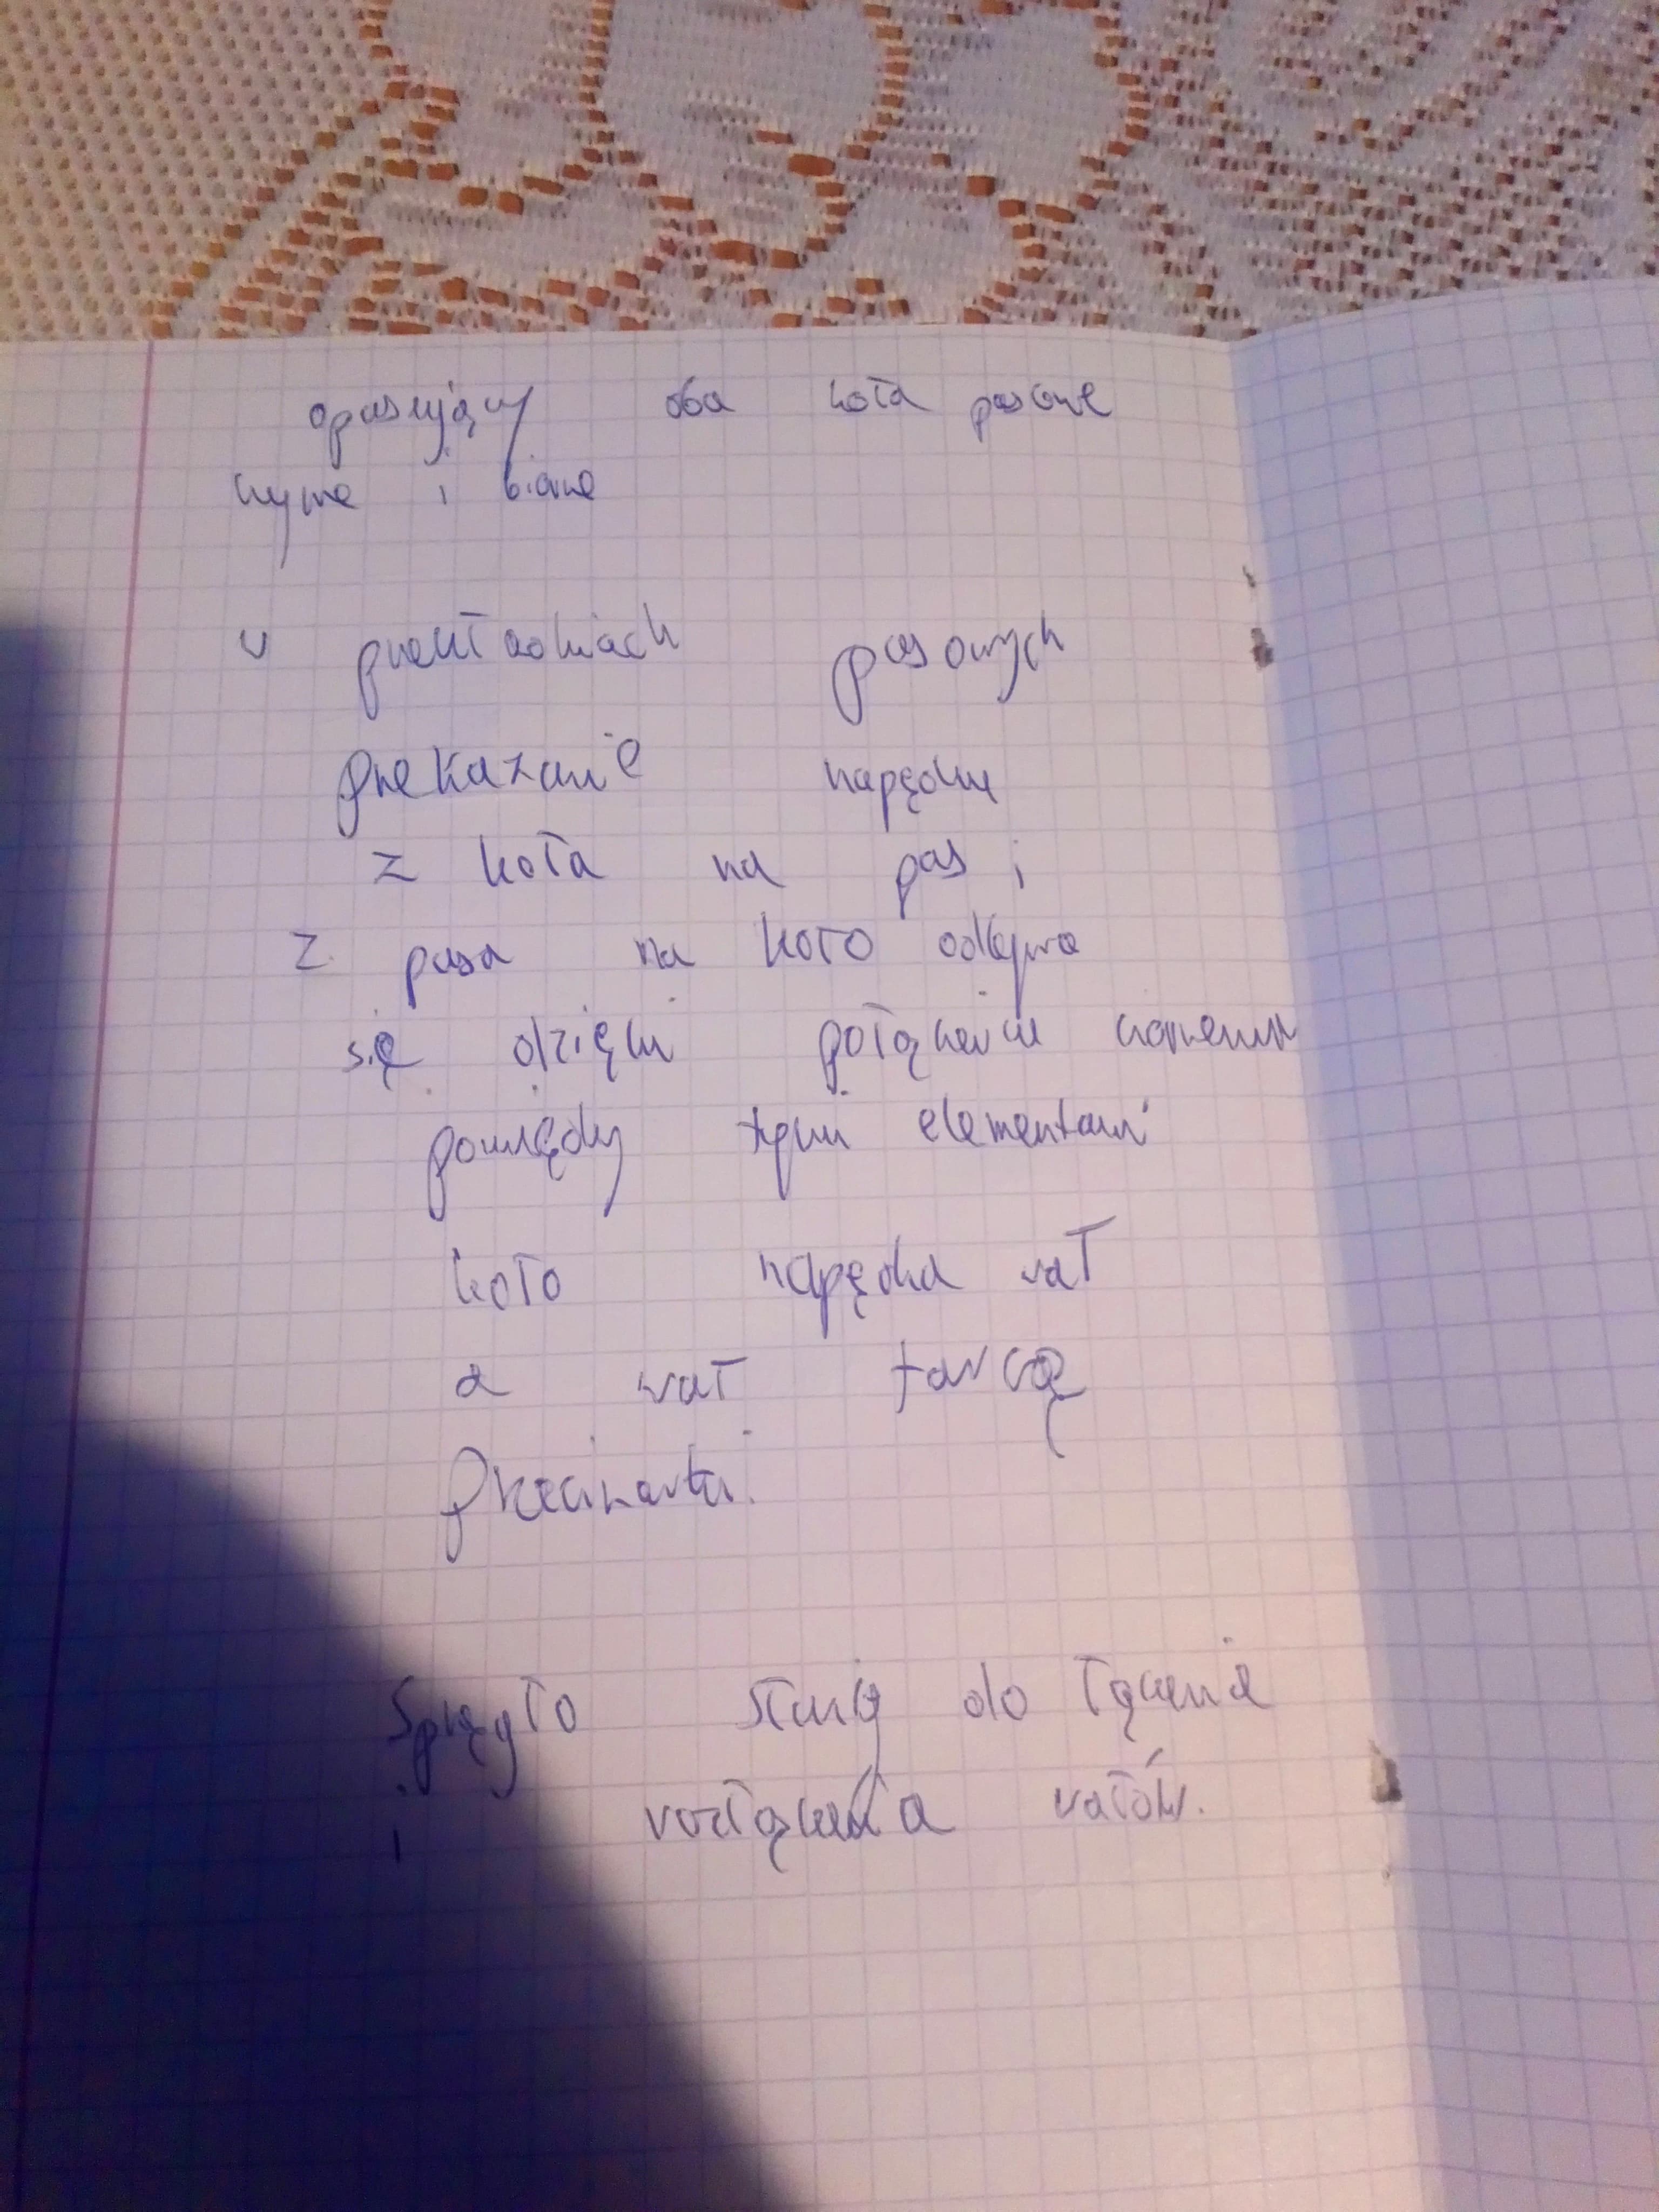 opasujący oba koła pasowe
czynne i bierne
w przekładniach pasowych
przekazanie napędu
z koła na pas i
z pasa na koło odbywa
się dzięki połączeniu ciernemu
pomiędzy tymi elementami
koło napędza wał
a wał tarczę
przecinarki.
Sprzęgło służy do łączenia
i rozłączania wałów.